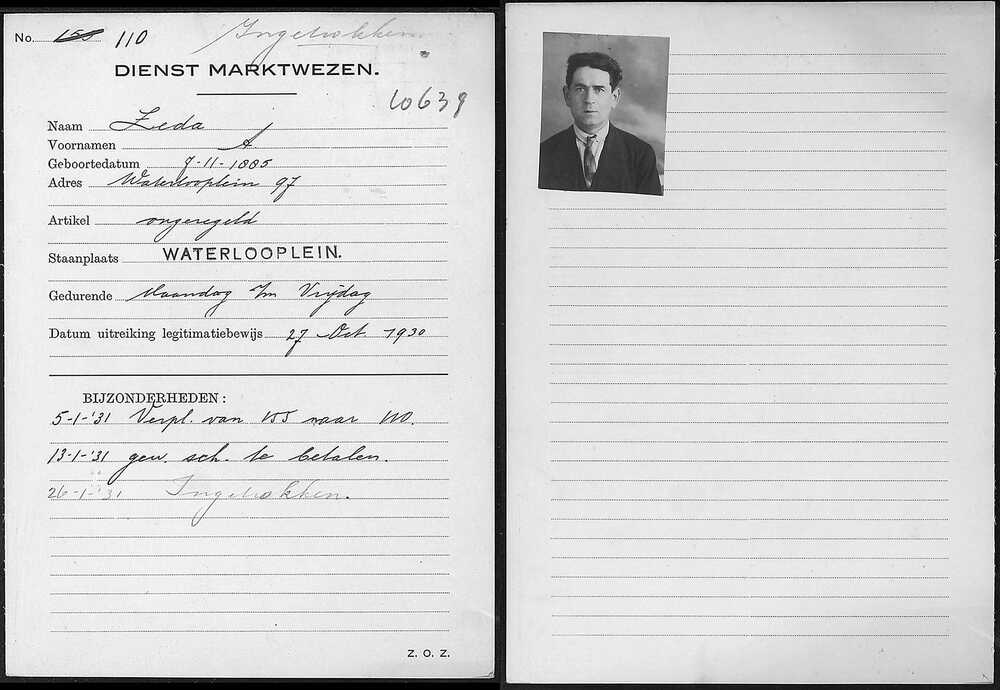 No. 155 110 Ingetrokken
DIENST MARKTWEZEN.
10639
Naam Zeda
Voornamen A.
Geboortedatum 7-11-1885
Adres Waterlooplein 97
Artikel ongeregeld
Staanplaats WATERLOOPLEIN.
Gedurende Maandag t/m Vrijdag
Datum uitreiking legitimatiebewijs 27 Oct. 1930
BIJZONDERHEDEN:
5-1-'31 Verpl. van 155 naar 110.
13-1-'31 gew. sch. te betalen.
26-1-'31 Ingetrokken.
Z. O. Z.